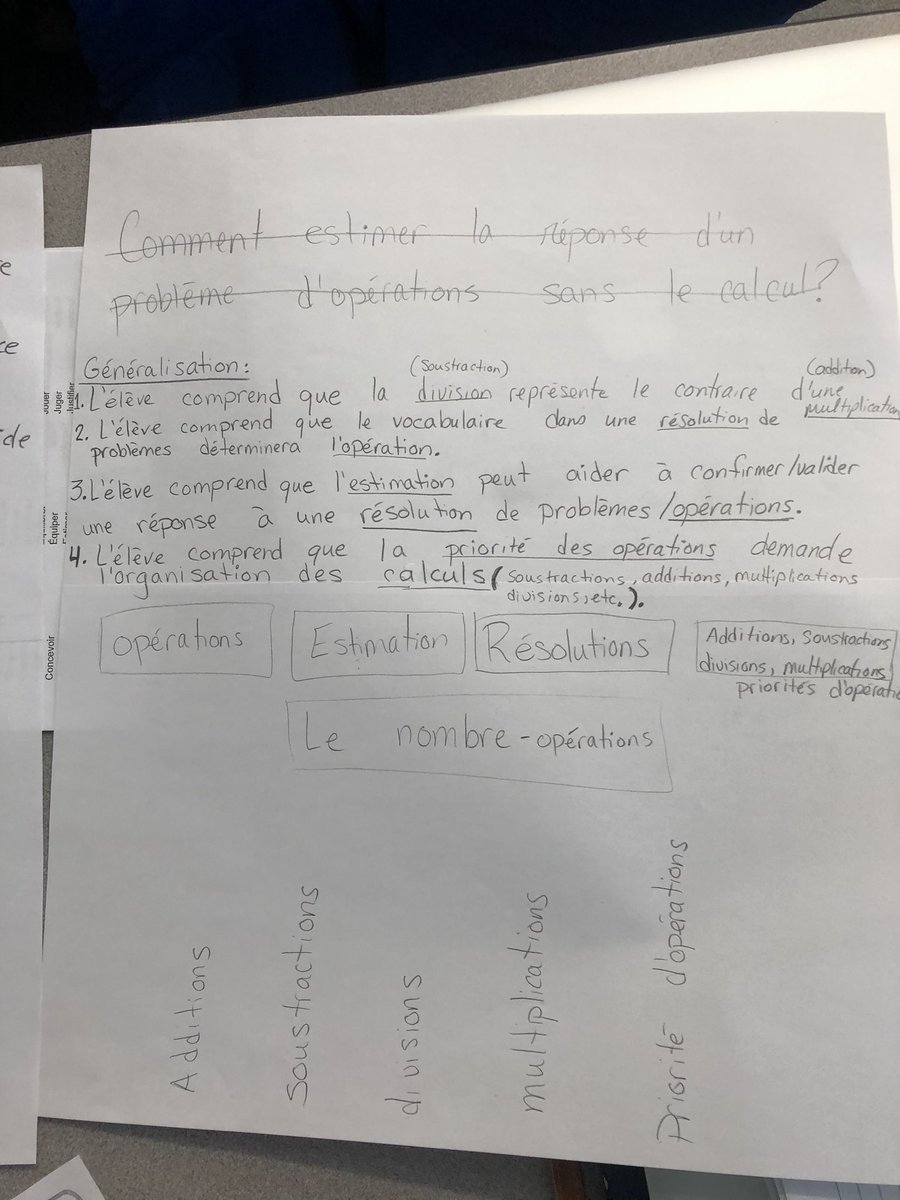 Comment estimer la réponse d'un
problème d'opérations sans le calcul?
Généralisation:
(Soustraction) (addition)
1. L'élève comprend que la division représente le contraire d'une multiplication
2. L'élève comprend que le vocabulaire dans une résolution de
problèmes déterminera l'opération.
3. L'élève comprend que l'estimation peut aider à confirmer/valider
une réponse à une résolution de problèmes/opérations.
4. L'élève comprend que la priorité des opérations demande
l'organisation des calculs (soustractions, additions, multiplications
divisions, etc.).
opérations
Estimation
Résolutions
Additions, Soustractions
divisions, multiplications,
priorités d'opératio
Le nombre - opérations
Additions
Soustractions
divisions
multiplications
Priorité d'opérations
Jouer
Juger
Justifier
Équiper
Concevoir
e
ce
ide